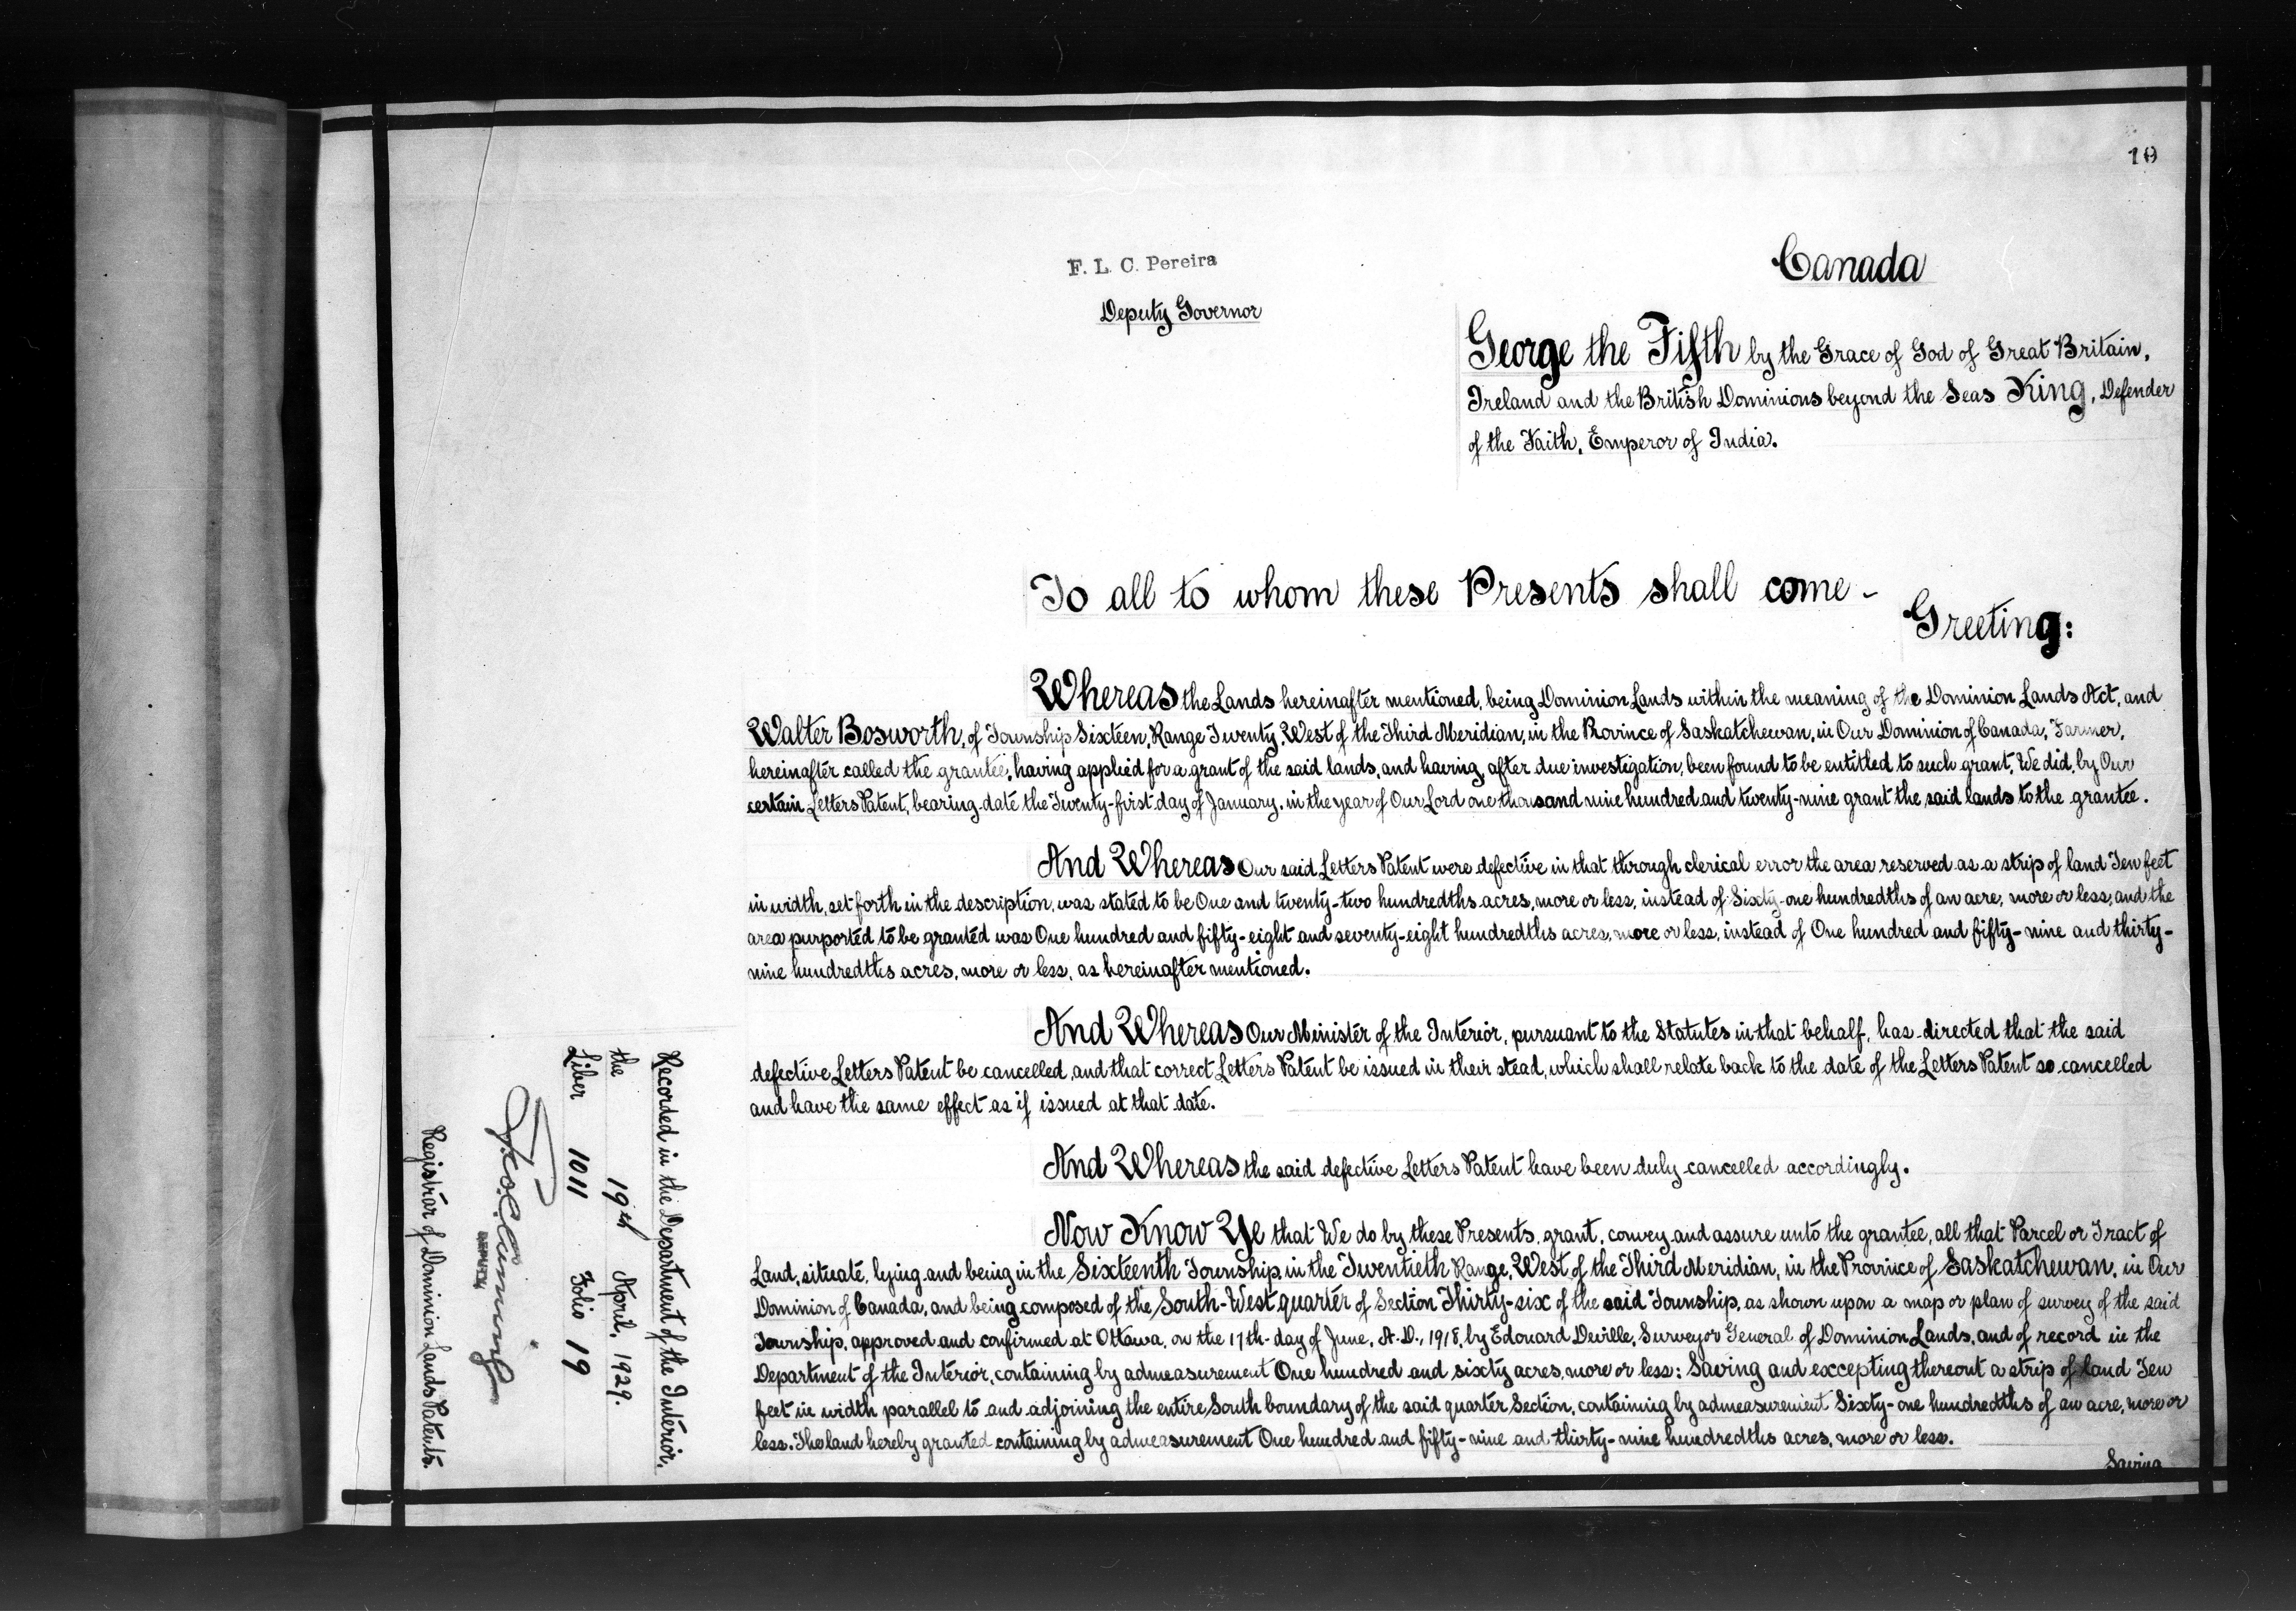 19
F. L. C. Pereira
Deputy Governor
Canada
George the Fifth by the Grace of God of Great Britain,
Ireland and the British Dominions beyond the Seas King, Defender
of the Faith, Emperor of India.
To all to whom these Presents shall come -
Greeting:
Whereas the Lands hereinafter mentioned, being Dominion Lands within the meaning of the Dominion Lands Act, and
Walter Bosworth, of Township Sixteen, Range Twenty, West of the Third Meridian, in the Province of Saskatchewan, in Our Dominion of Canada, Farmer,
hereinafter called the grantee, having applied for a grant of the said lands, and having, after due investigation, been found to be entitled to such grant, We did, by Our
certain Letters Patent, bearing date the Twenty-first day of January, in the year of Our Lord one thousand nine hundred and twenty-nine grant the said lands to the grantee.
And Whereas Our said Letters Patent were defective in that through clerical error the area reserved as a strip of land Ten feet
in width, set forth in the description, was stated to be One and twenty-two hundredths acres, more or less, instead of Sixty-one hundredths of an acre, more or less, and the
area purported to be granted was One hundred and fifty-eight and seventy-eight hundredths acres, more or less, instead of One hundred and fifty-nine and thirty-
nine hundredths acres, more or less, as hereinafter mentioned.
And Whereas Our Minister of the Interior, pursuant to the Statutes in that behalf, has directed that the said
defective Letters Patent be cancelled, and that correct Letters Patent be issued in their stead, which shall relate back to the date of the Letters Patent so cancelled
and have the same effect as if issued at that date.
And Whereas the said defective Letters Patent have been duly cancelled accordingly.
Now Know Ye that We do by these Presents, grant, convey and assure unto the grantee, all that Parcel or Tract of
Land, situate, lying and being in the Sixteenth Township, in the Twentieth Range, West of the Third Meridian, in the Province of Saskatchewan, in Our
Dominion of Canada, and being composed of the South-West quarter of Section Thirty-six of the said Township, as shown upon a map or plan of survey of the said
Township, approved and confirmed at Ottawa, on the 17th day of June, A.D., 1918, by Edouard Deville, Surveyor General of Dominion Lands, and of record in the
Department of the Interior, containing by admeasurement One hundred and sixty acres, more or less: Saving and excepting thereout a strip of land Ten
feet in width parallel to and adjoining the entire South boundary of the said quarter Section, containing by admeasurement Sixty-one hundredths of an acre, more or
less. The land hereby granted containing by admeasurement One hundred and fifty-nine and thirty-nine hundredths acres, more or less.
Saving
Recorded in the Department of the Interior,
the 19th April, 1929.
Liber 1011 Folio 19
DEPUTY
Registrar of Dominion Lands Patents.